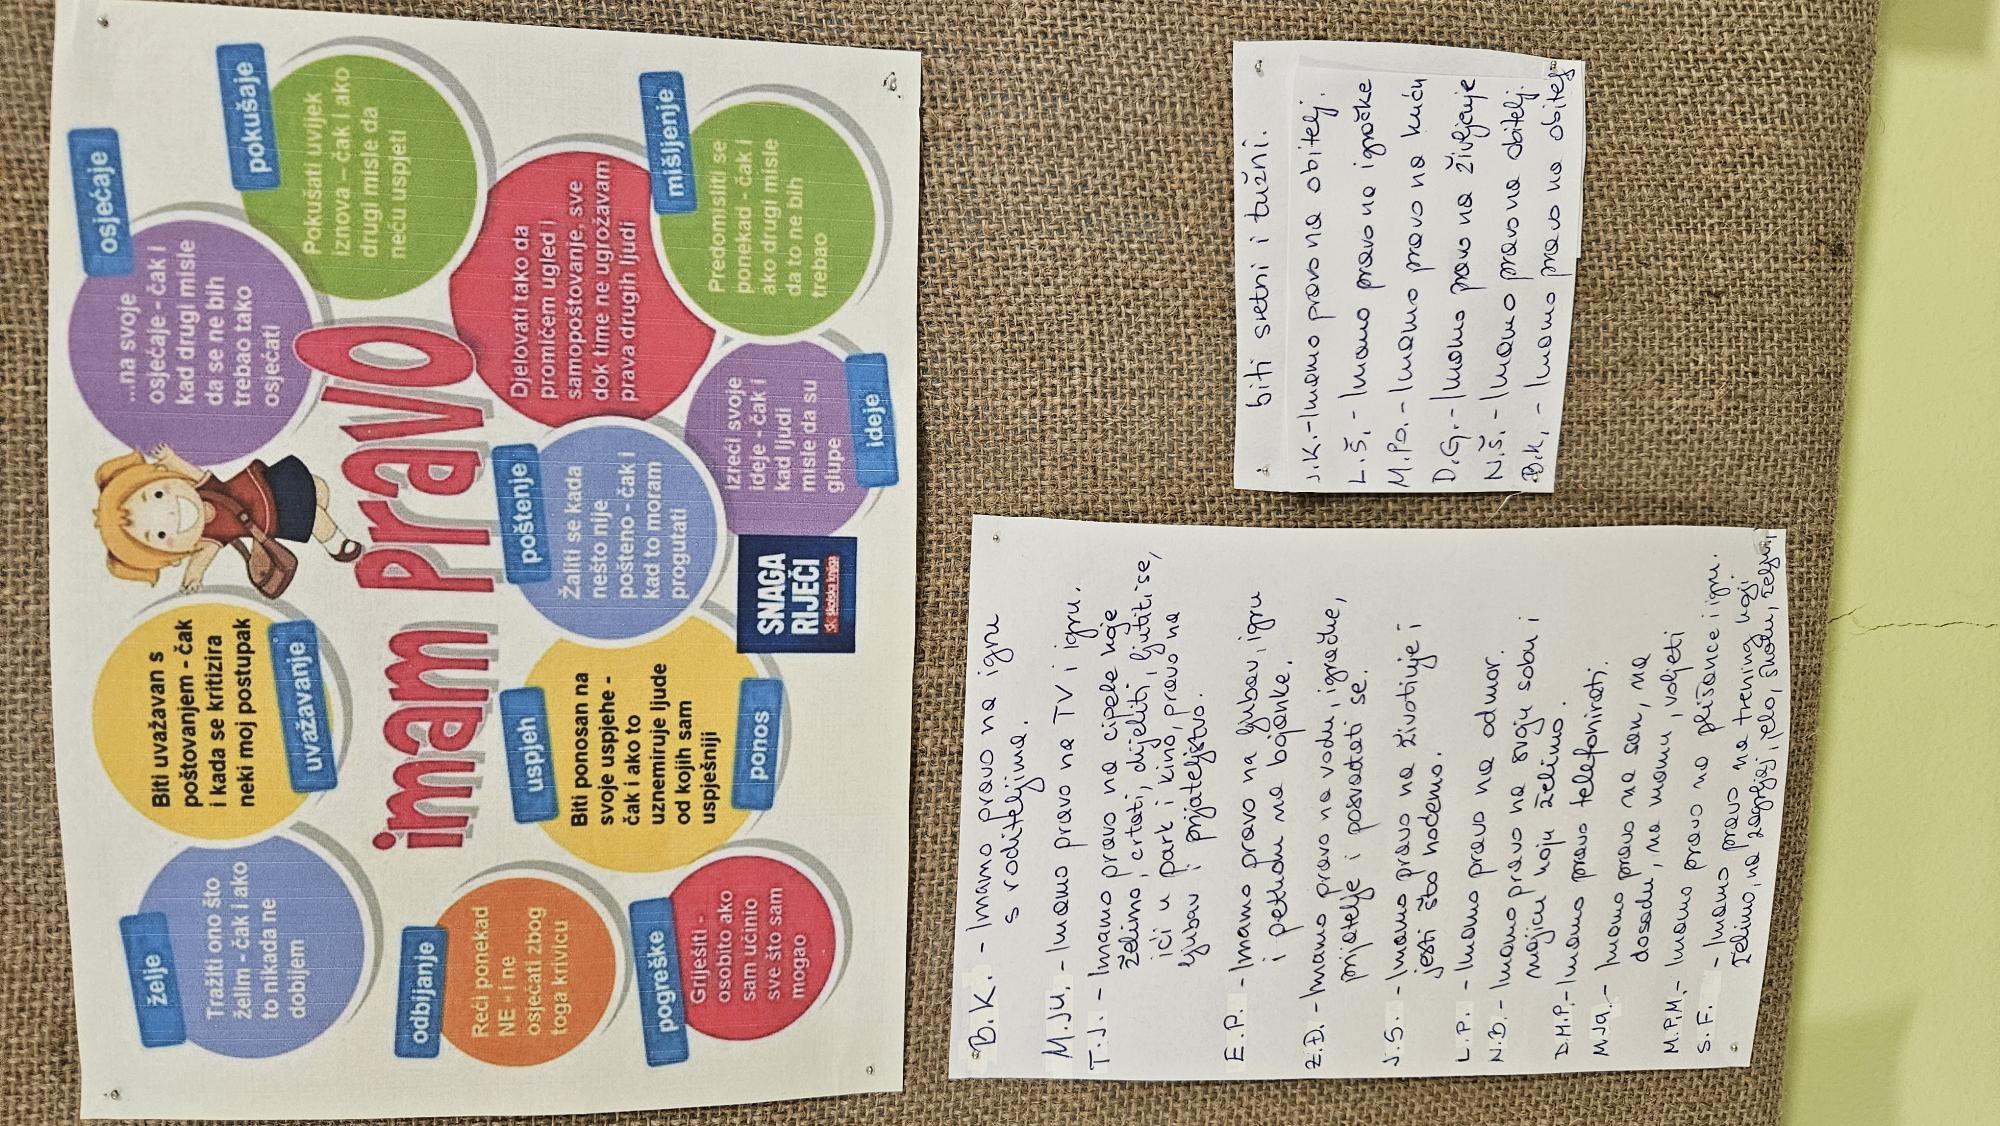 želje
Tražiti ono što
želim - čak i ako
to nikada ne
dobijem
uvažavanje
Biti uvažavan s
poštovanjem - čak
i kada se kritizira
neki moj postupak
osjećaje
...na svoje
osjećaje - čak i
kad drugi misle
da se ne bih
trebao tako
osjećati
pokušaje
Pokušati uvijek
iznova – čak i ako
drugi misle da
neću uspjeti
imam pravo
odbijanje
Reći ponekad
NE - i ne
osjećati zbog
toga krivicu
uspjeh
Biti ponosan na
svoje uspjehe -
čak i ako to
uznemiruje ljude
od kojih sam
uspješniji
ponos
poštenje
Žaliti se kada
nešto nije
pošteno - čak i
kad to moram
progutati
Djelovati tako da
promičem ugled i
samopoštovanje, sve
dok time ne ugrožavam
prava drugih ljudi
pogreške
Griješiti -
osobito ako
sam učinio
sve što sam
mogao
SNAGA
RIJEČI
školska knjiga
izreći svoje
ideje - čak i
kad ljudi
misle da su
glupe
ideje
mišljenje
Predomisliti se
ponekad - čak i
ako drugi misle
da to ne bih
trebao
B.K. - Imamo pravo na igru
s roditeljima.
M.Ju. - Imamo pravo na TV i igru.
T.J. - Imamo pravo na cipele koje
želimo, crtati, dijeliti, ljutiti se,
ići u park i kino, pravo na
ljubav i prijateljstvo.
E.P. - Imamo pravo na ljubav, igru
i petkom na bojanke.
Z.Đ. - Imamo pravo na vodu, igračke,
prijatelje i posvađati se.
J.S. - Imamo pravo na životinje i
jesti što hoćemo.
L.P. - Imamo pravo na odmor.
N.B. - Imamo pravo na svoju sobu i
majicu koju želimo.
D.M.P. - Imamo pravo telefonirati.
M.Ja. - Imamo pravo na san, na
dosadu, na mamu, voljeti
M.P.M. - Imamo pravo na plišance i igru.
S.F. - Imamo pravo na trening koji
želimo, na zagrljaj, jelo, školu, željni,
biti sretni i tužni.
J.K. - Imamo pravo na obitelj.
L.Š. - Imamo pravo na igračke
M.Po. - Imamo pravo na kuću
D.G. - Imamo pravo na življenje
N.Š. - Imamo pravo na obitelj.
B.K. - Imamo pravo na obitelj